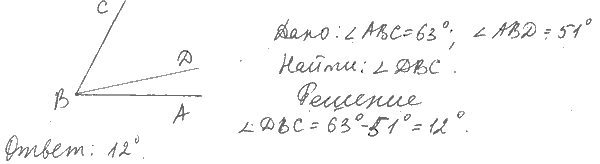 C
Дано: ∠ABC=63°; ∠ABD=51°
D
Найти: ∠DBC.
B
A
Решение
∠DBC=63°-51°=12°.
Ответ: 12°.